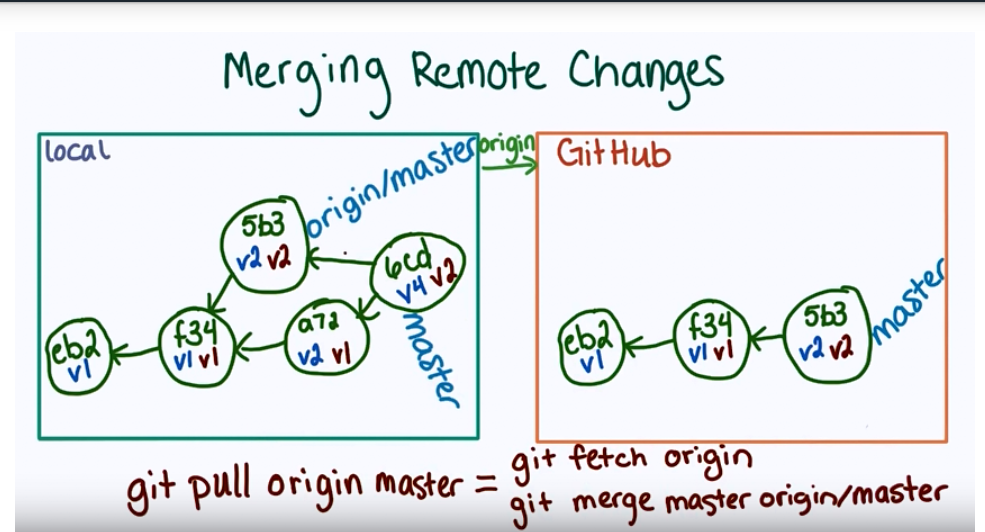 Merging Remote Changes
local
origin/master
origin
GitHub
5b3
v2 v2
6cd
v4 v2
master
eb2
v1
f34
v1 v1
a72
v2 v1
eb2
v1
f34
v1 v1
5b3
v2 v2
master
git pull origin master = git fetch origin
git merge master origin/master